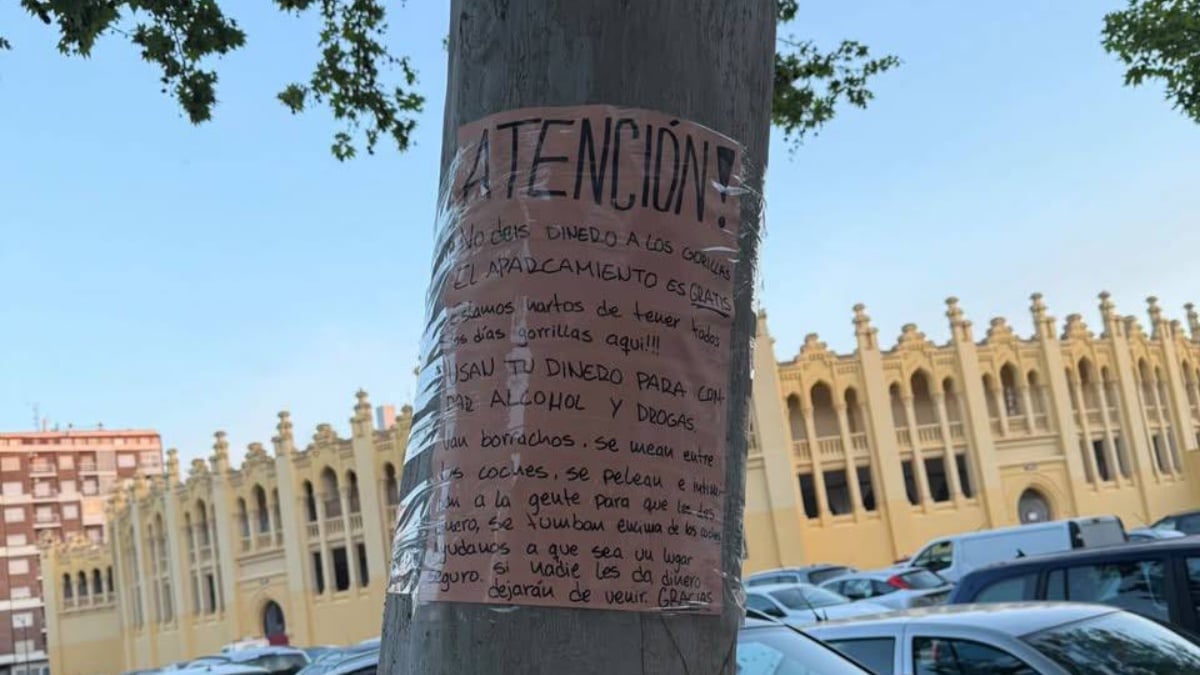 ATENCIÓN!
No deis DINERO A LOS GORILLAS
EL APARCAMIENTO ES GRATIS
Estamos hartos de tener todos
los días gorrillas aqui!!!
USAN TU DINERO PARA COM-
PRAR ALCOHOL Y DROGAS.
Van borrachos, se mean entre
los coches, se pelean e intimi-
dan a la gente para que les den
dinero, se tumban encima de los coches
Ayudanos a que sea un lugar
seguro. si nadie les da dinero
dejarán de venir. GRACIAS